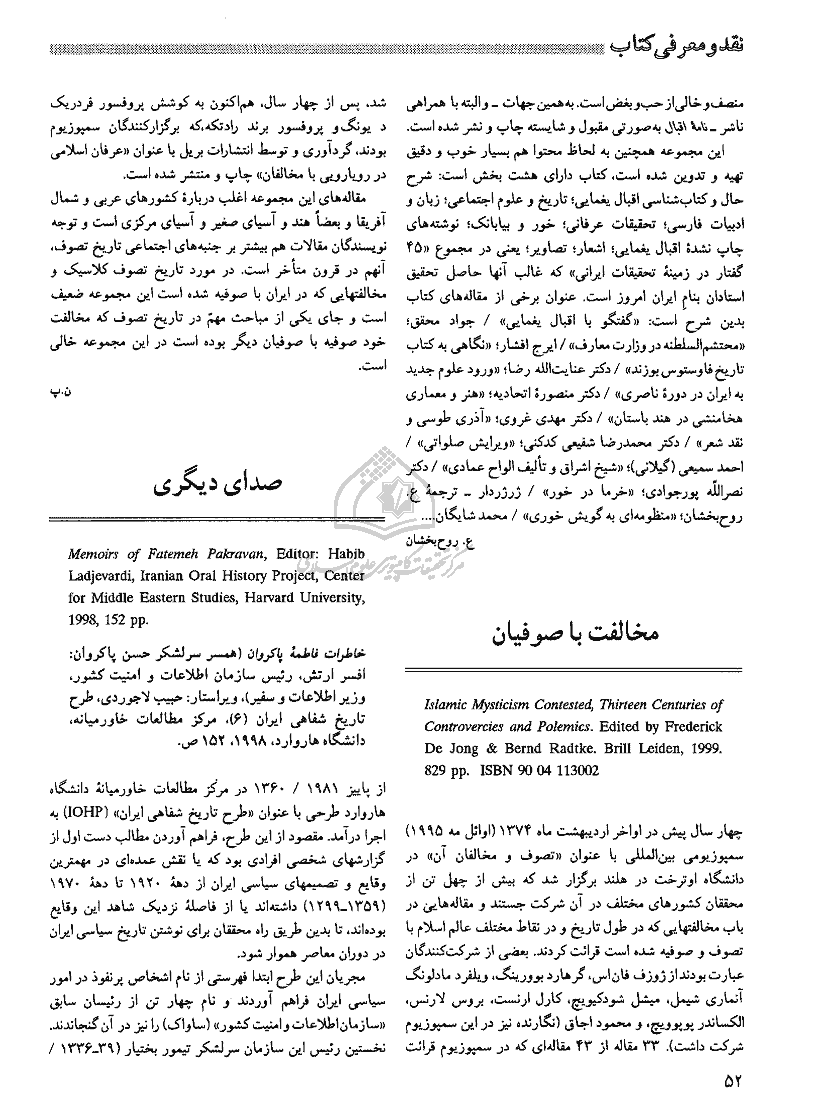 نقد و معرفی کتاب
منصف و خالی از حب و بغض است. به همین جهات ـ و البته با همراهی
ناشر ـ نامهٔ اقبال به‌صورتی مقبول و شایسته چاپ و نشر شده است.
این مجموعه همچنین به لحاظ محتوا هم بسیار خوب و دقیق
تهیه و تدوین شده است، کتاب دارای هشت بخش است: شرح
حال و کتاب‌شناسی اقبال یغمایی؛ تاریخ و علوم اجتماعی؛ زبان و
ادبیات فارسی؛ تحقیقات عرفانی؛ خور و بیابانک؛ نوشته‌های
چاپ نشدهٔ اقبال یغمایی؛ اشعار؛ تصاویر؛ یعنی در مجموع «۴۵
گفتار در زمینهٔ تحقیقات ایرانی» که غالب آنها حاصل تحقیق
استادان بنامِ ایران امروز است. عنوان برخی از مقاله‌های کتاب
بدین شرح است: «گفتگو با اقبال یغمایی» / جواد محقق؛
«محتشم‌السلطنه در وزارت معارف» / ایرج افشار؛ «نگاهی به کتاب
تاریخ فاوستوس بوزند» / دکتر عنایت‌الله رضا؛ «ورود علوم جدید
به ایران در دورهٔ ناصری» / دکتر منصورهٔ اتحادیه؛ «هنر و معماری
هخامنشی در هند باستان» / دکتر مهدی غروی؛ «آذری طوسی و
نقد شعر» / دکتر محمدرضا شفیعی کدکنی؛ «ویرایش صلواتی» /
احمد سمیعی (گیلانی)؛ «شیخ اشراق و تألیف الواح عمادی» / دکتر
نصرالله پورجوادی؛ «خرما در خور» / ژرژردار ـ ترجمهٔ ع.
روح‌بخشان؛ «منظومه‌ای به گویش خوری» / محمد شایگان....
ع. روح‌بخشان
مخالفت با صوفیان
Islamic Mysticism Contested, Thirteen Centuries of
Controvercies and Polemics. Edited by Frederick
De Jong & Bernd Radtke. Brill Leiden, 1999.
829 pp. ISBN 90 04 113002
چهار سال پیش در اواخر اردیبهشت ماه ۱۳۷۴ (اوائل مه ۱۹۹۵)
سمپوزیومی بین‌المللی با عنوان «تصوف و مخالفان آن» در
دانشگاه اوترخت در هلند برگزار شد که بیش از چهل تن از
محققان کشورهای مختلف در آن شرکت جستند و مقاله‌هایی در
باب مخالفتهایی که در طول تاریخ و در نقاط مختلف عالم اسلام با
تصوف و صوفیه شده است قرائت کردند. بعضی از شرکت‌کنندگان
عبارت بودند از ژوزف فان‌اس، گرهارد بوورینگ، ویلفرد مادلونگ
آنماری شیمل، میشل شودکیویچ، کارل ارنست، بروس لارنس،
الکساندر پوپوویچ، و محمود اجاق (نگارنده نیز در این سمپوزیوم
شرکت داشت). ۳۳ مقاله از ۴۳ مقاله‌ای که در سمپوزیوم قرائت
شد، پس از چهار سال، هم‌اکنون به کوشش پروفسور فردریک
د یونگ و پروفسور برند رادتکه،که برگزارکنندگان سمپوزیوم
بودند، گردآوری و توسط انتشارات بریل با عنوان «عرفان اسلامی
در رویارویی با مخالفان» چاپ و منتشر شده است.
مقاله‌های این مجموعه اغلب دربارهٔ کشورهای عربی و شمال
آفریقا و بعضاً هند و آسیای صغیر و آسیای مرکزی است و توجه
نویسندگان مقالات هم بیشتر بر جنبه‌های اجتماعی تاریخ تصوف،
آنهم در قرون متأخر است. در مورد تاریخ تصوف کلاسیک و
مخالفتهایی که در ایران با صوفیه شده است این مجموعه ضعیف
است و جای یکی از مباحث مهمّ در تاریخ تصوف که مخالفت
خود صوفیه با صوفیان دیگر بوده است در این مجموعه خالی
است.
ن.پ
صدای دیگری
Memoirs of Fatemeh Pakravan, Editor: Habib
Ladjevardi, Iranian Oral History Project, Center
for Middle Eastern Studies, Harvard University,
1998, 152 pp.
خاطرات فاطمهٔ پاکروان (همسر سرلشکر حسن پاکروان:
افسر ارتش، رئیس سازمان اطلاعات و امنیت کشور،
وزیر اطلاعات و سفیر)، ویراستار: حبیب لاجوردی، طرح
تاریخ شفاهی ایران (۶)، مرکز مطالعات خاورمیانه،
دانشگاه هاروارد، ۱۹۹۸، ۱۵۲ ص.
از پاییز ۱۹۸۱ / ۱۳۶۰ در مرکز مطالعات خاورمیانهٔ دانشگاه
هاروارد طرحی با عنوان «طرح تاریخ شفاهی ایران» (IOHP) به
اجرا درآمد. مقصود از این طرح، فراهم آوردن مطالب دست اول از
گزارشهای شخصی افرادی بود که یا نقش عمده‌ای در مهمترین
وقایع و تصمیمهای سیاسی ایران از دههٔ ۱۹۲۰ تا دههٔ ۱۹۷۰
(۱۳۵۹ـ۱۲۹۹) داشته‌اند یا از فاصلهٔ نزدیک شاهد این وقایع
بوده‌اند، تا بدین طریق راه محققان برای نوشتن تاریخ سیاسی ایران
در دوران معاصر هموار شود.
مجریان این طرح ابتدا فهرستی از نام اشخاص پرنفوذ در امور
سیاسی ایران فراهم آوردند و نام چهار تن از رئیسان سابق
«سازمان اطلاعات و امنیت کشور» (ساواک) را نیز در آن گنجاندند.
نخستین رئیس این سازمان سرلشکر تیمور بختیار (۳۹ـ۱۳۳۶ /
۵۲
مرکز تحقیقات کامپیوتری علوم اسلامی